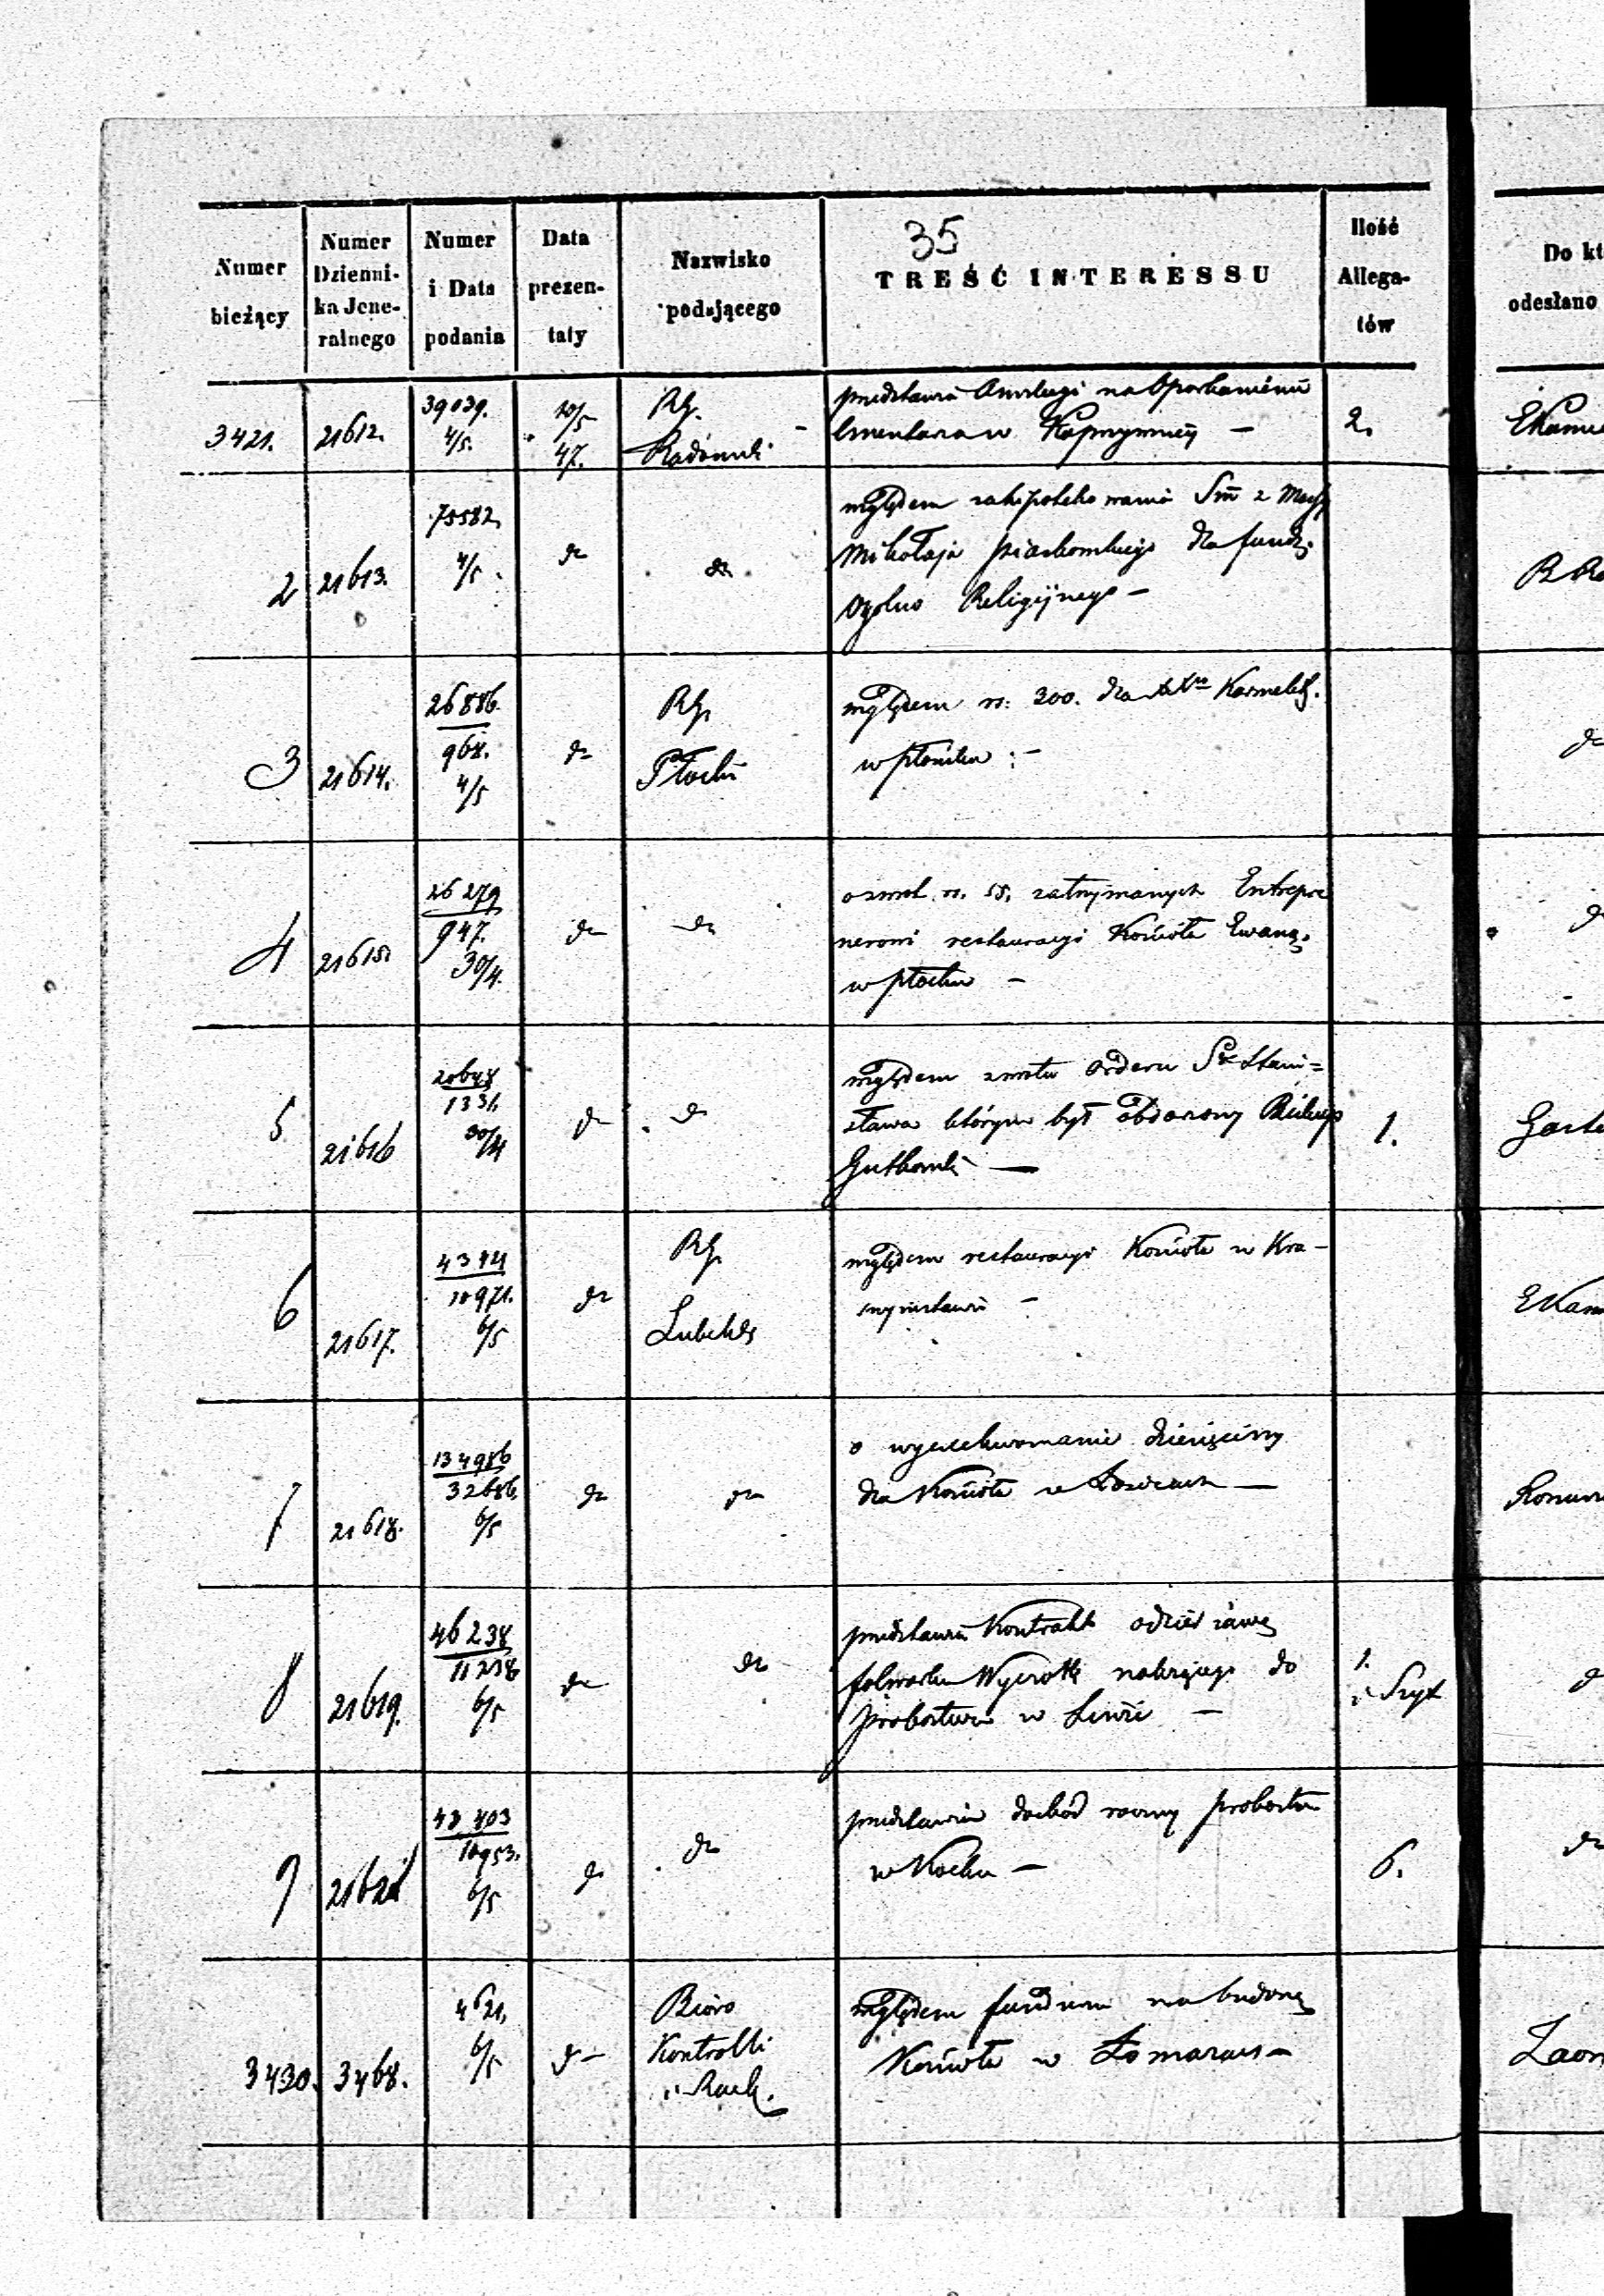 35
Numer bieżący
Numer Dzienni-ka Jene-ralnego
Numer i Data podania
Data prezen-taty
Nazwisko podającego
TREŚĆ INTERESSU
Ilość Allega-tów
Do kt
odesłano
3421. 21612. 39039. 4/5. 10/5 47. RG. Radomski
przedstawia Anszlagi na Oparkanienie
Cmentarza w Koprzywnicy — 2.
2 21613. 75582, 4/5. dº dº
względem zahipotekowania Sm̄ z Massy
Mikołaja Piaskowskiego dla fundu.
Ogólno Religijnego —
3 21614. 26886. 968. 4/5 dº RG. Płocki
względem rs: 300. dla Karmelit.
w Płońsku : —
4 21615. 26279 947. 30/4. dº dº
o zwrot rs. 58, zatrzymanych Entrepre
nerowi restauracyi Kościoła Ewang.
w Płocku —
5 21616 1331. 30/4 dº dº
względem zwrotu Orderu Sgo Stani=
sława którym był obdarzony Biskup
Gutkowski — 1.
6 21617. 10971. 6/5 dº RG. Lubelski
względem restauracyi Kościoła w Kra-
snymstawie —
7 21618. 134986 32686, 6/5 dº dº
o wyexekwowanie dziesięciny
dla Kościoła w Łosicach —
8 21619. 46238 11238 6/5 dº dº
przedstawia Kontrakt o dzierżawę
folwarku należącego do
probostwa w Liwie — 1. i Szyt
9 10953. 6/5 dº dº
przedstawia dochód roczny probostwa
w Kocku — 6.
3430. 3468. 4621, 6/5 dº Biuro Kontrolli i Rach.
względem funduszu na budowę
Kościoła w Łomazach —